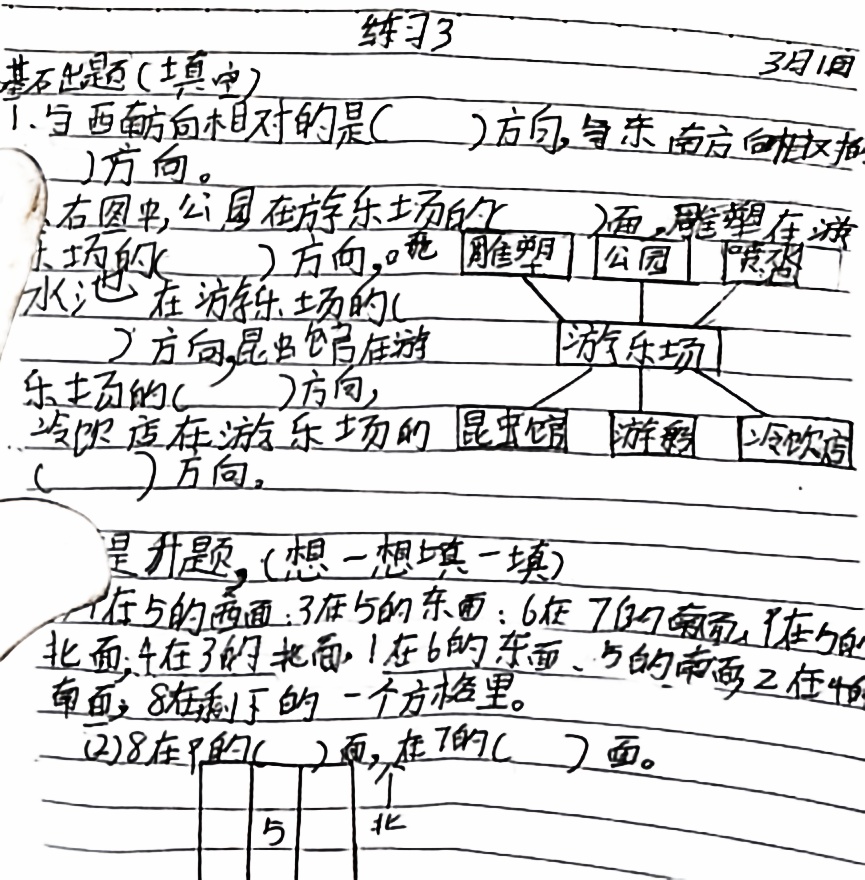 练习3
3月1日
基石出题(填空)
1.与西南方向相对的是(　　)方向,与东南方向相
)方向。
右图中,公园在游乐场的(　　)面,雕塑在游
乐场的(　　)方向,
雕塑 公园 喷泡
水池在游乐场的(
)方向,昆虫馆在游
游乐场
乐场的(　　)方向,
冷饮店在游乐场的
昆虫馆 冷饮店
(　　)方向。
是升题,(想一想填一填)
在5的西面;3在5的东面;6在7的南面,9在5的
北面;4在3的北面,1在6的东面、5的南面,2在4的
南面;8在剩下的一个方格里。
(2)8在9的(　　)面,在7的(　　)面。
5
北